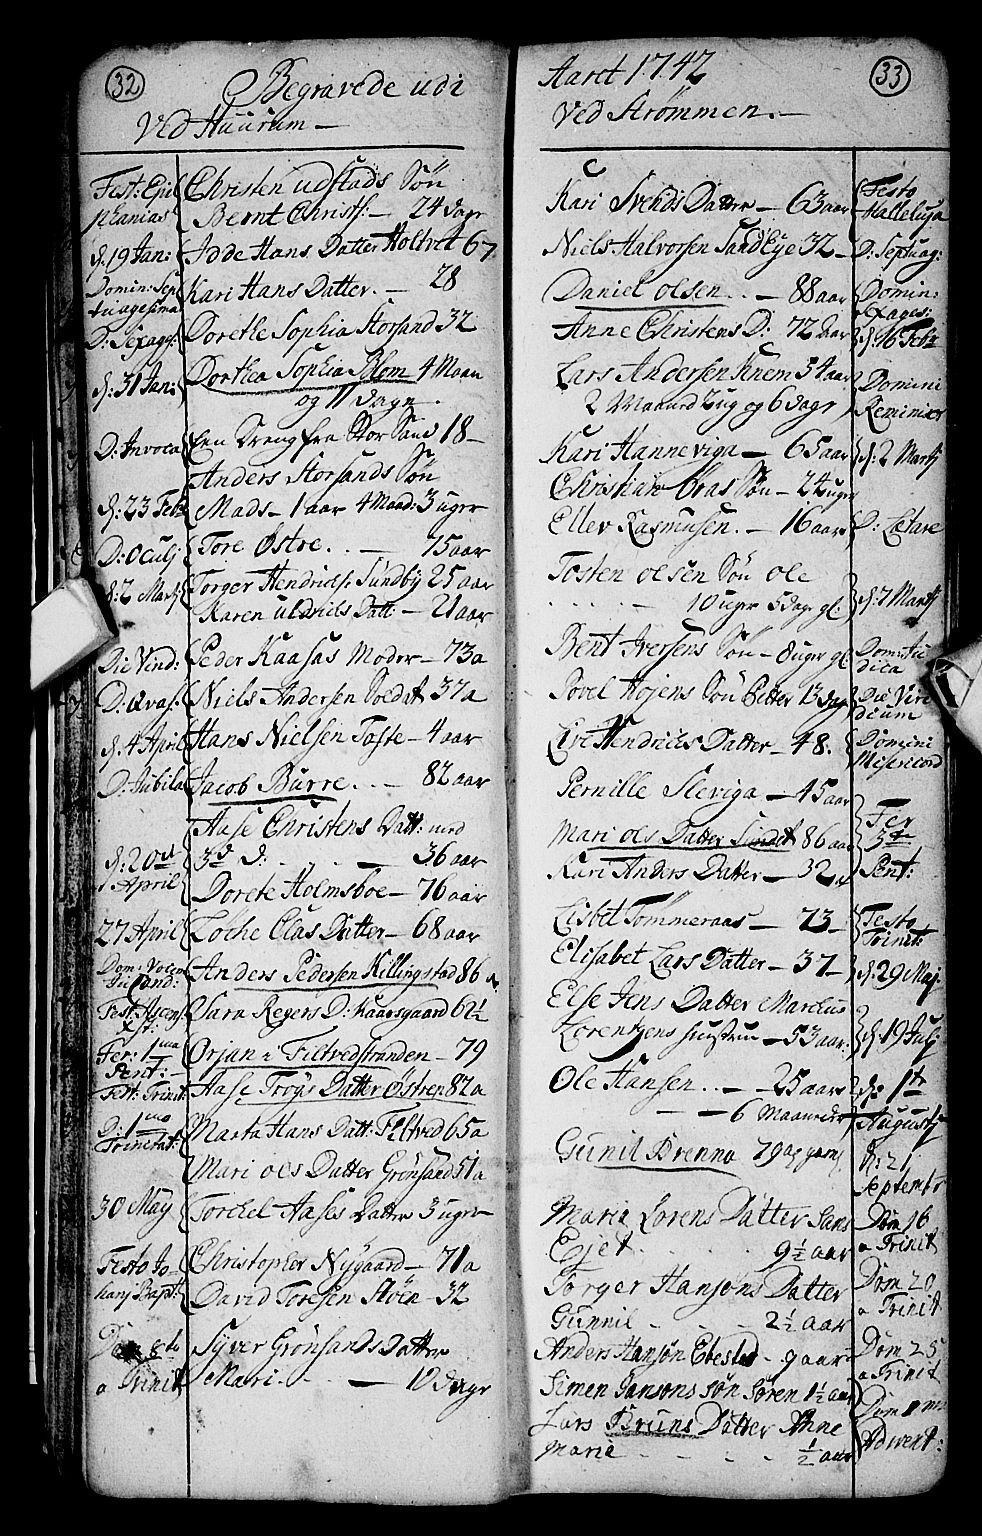 32
Begravede udi
Ved Huurum —
Fest: Epi Christen udstads Søn
phanias Bernt Christs: — 24 dage
d. 19 Jan: Hans Datter Holtvet 67
Domin: Sep
tuagesima Kari Hans Datter. — 28
D: Sexag: Dorethe Sophia Storsand 32
d: 31 Jan: Dorthea Sophia Blom 4 Maan
og 11 dage.
D: Invoca Een Dreng fra Stor Sand 18 —
Anders Storsands Søn
d: 23 Feb: Mads — 1 aar 4 Maad: 3 uger
D: Oculj Tore Østre . . — 75 aar
d: 2 Marti Torger Hendrichs: Sundby 25 aar
Karen uldrichs Datt: — 21 aar
Die Vind: Peder Kaasas Moder — 73 a
D: Qvas: Niels Andersen Soldat 37 a
d. 4 April Hans Nielsen Tofte — 4 aar
D: Jubila Jacob Burre . . — 82 aar
Aase Christens Datt: med
d: 20de 3d D: . . . — 36 aar
April Dorete Holmsboe — 76 aar
27 April Løche Olas Datter — 68 aar
Dom: Vocem
Jucund: Anders Pedersen Killingstad 86 a
Fest: Ascens
Xst: Sara Regers D: Haarsgaard 62½
Fer: 1ma
Pent: — Ørjan i Filtvedstranden — 79
Fest: Trinit Aase Troys Datter Østren 82 a
D: 1ma
Trinitat: Marta Hans Datt: Filtved 65 a
Mari ols Datter Grønsand 51 a
30 May Torchel Aases Datter 3 uger
Festo Jo Christopher Nygaard — 71 a
hanj Bapt: David Toresen Støen — 32
Dom 8de Syver Grønsands Datter
a Trinit Mari . . — 10 dage
33
Aaret 1742
Ved Strømmen. —
Kari Svends Datter — 63 aar Festo
Halleluja
Niels Halvorsen Sandbye 32 — D: Septuag:
Daniel olsen . . — 88 aar Domin:
Sexages:
Anne Christens D: 72 aar d: 16 Feb:
Lars Andersen Knem 34 aar Domini
2 Maaned 2 ug og 6 dage Reminisc
Kari Hanneviga — 65 aar d: 2 Martj
Christian bras Søn — 24 uger
Ellev Rasmusen. — 16 aar D: Lætare
Tosten olsen Søn ole
. . . . . — 10 uger 5 dag gl: d: 7 Martj
Bent Iversens Søn — 8 uger gl Dom: Ju
dica
Povel Højens Søn Petter 13 dag Die Viri
dium
Live Hendrichs Datter — 48. Domini
Misericord
Pernille Sleviga — 45 aar Fer
Mari ols Datter Sundet 86 aar 3tia
Kari Anders Datter — 32 a Pent:
Lisbet Tømmeraas — 73 — Festo
Trinit:
Elisabet Lars Datter — 37 — d: 29 Maj:
Else Jens Datter Marchus
Lorentzens hustrue — 53 aar. d: 19 Julj
Ole Hansen . . — 25 aar d: 1te
— — 6 Maaneder Augustj
Gunil Brenna 79 aar gaml d: 21
Septembr
Maria Lorens Datter Sans Dom 16
Ejet . . . . 9½ aar a Trinit
Torger Hansøns Datter Dom 20
Gunnil . . . 2½ aar a Trinit
Anders Hansøn Ebested . 9 aar Dom 25
a Trinit
Simen Jansøns søn Søren 1½ aar Dom 1ma
Lars Bruns Datter Anne Advent:
Marie . . . . ½ aar